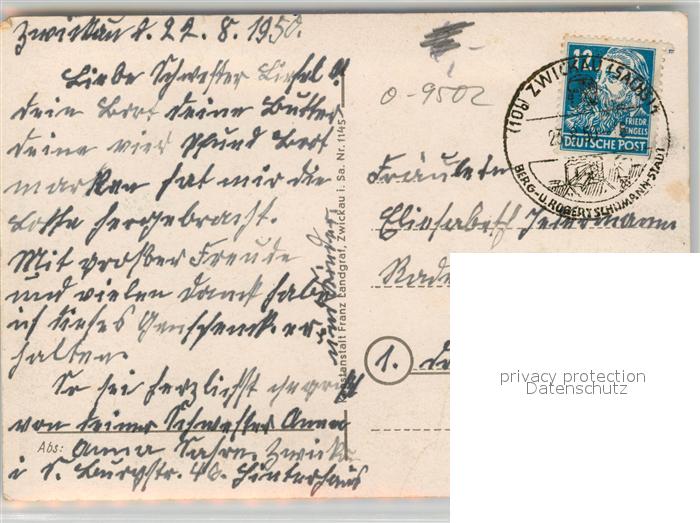 Zwickau d. 22. 8. 1950.
Liebe Schwester Liesel!
dein Brot deine Butter
deine vier Pfund Brot
marken hat mir die
Lotte hergebracht.
Mit großer Freude
und vielen Dank habe
ich dieses Geschenk er-
halten.
So sei herzlichst gegrüßt
von deiner Schwester Anna
Abs: Anna Zwickau
i S. Burgstr. 40. Hinterhaus
Kunstanstalt Franz Landgraf, Zwickau i. Sa. Nr. 1145
O-9502
12
FRIEDR
ENGELS
DEUTSCHE POST
(10b) ZWICKAU (SACHS)
BERG-U.ROBERT SCHUMANN-STADT
Fräulein
Elisabeth
1.
privacy protection
Datenschutz